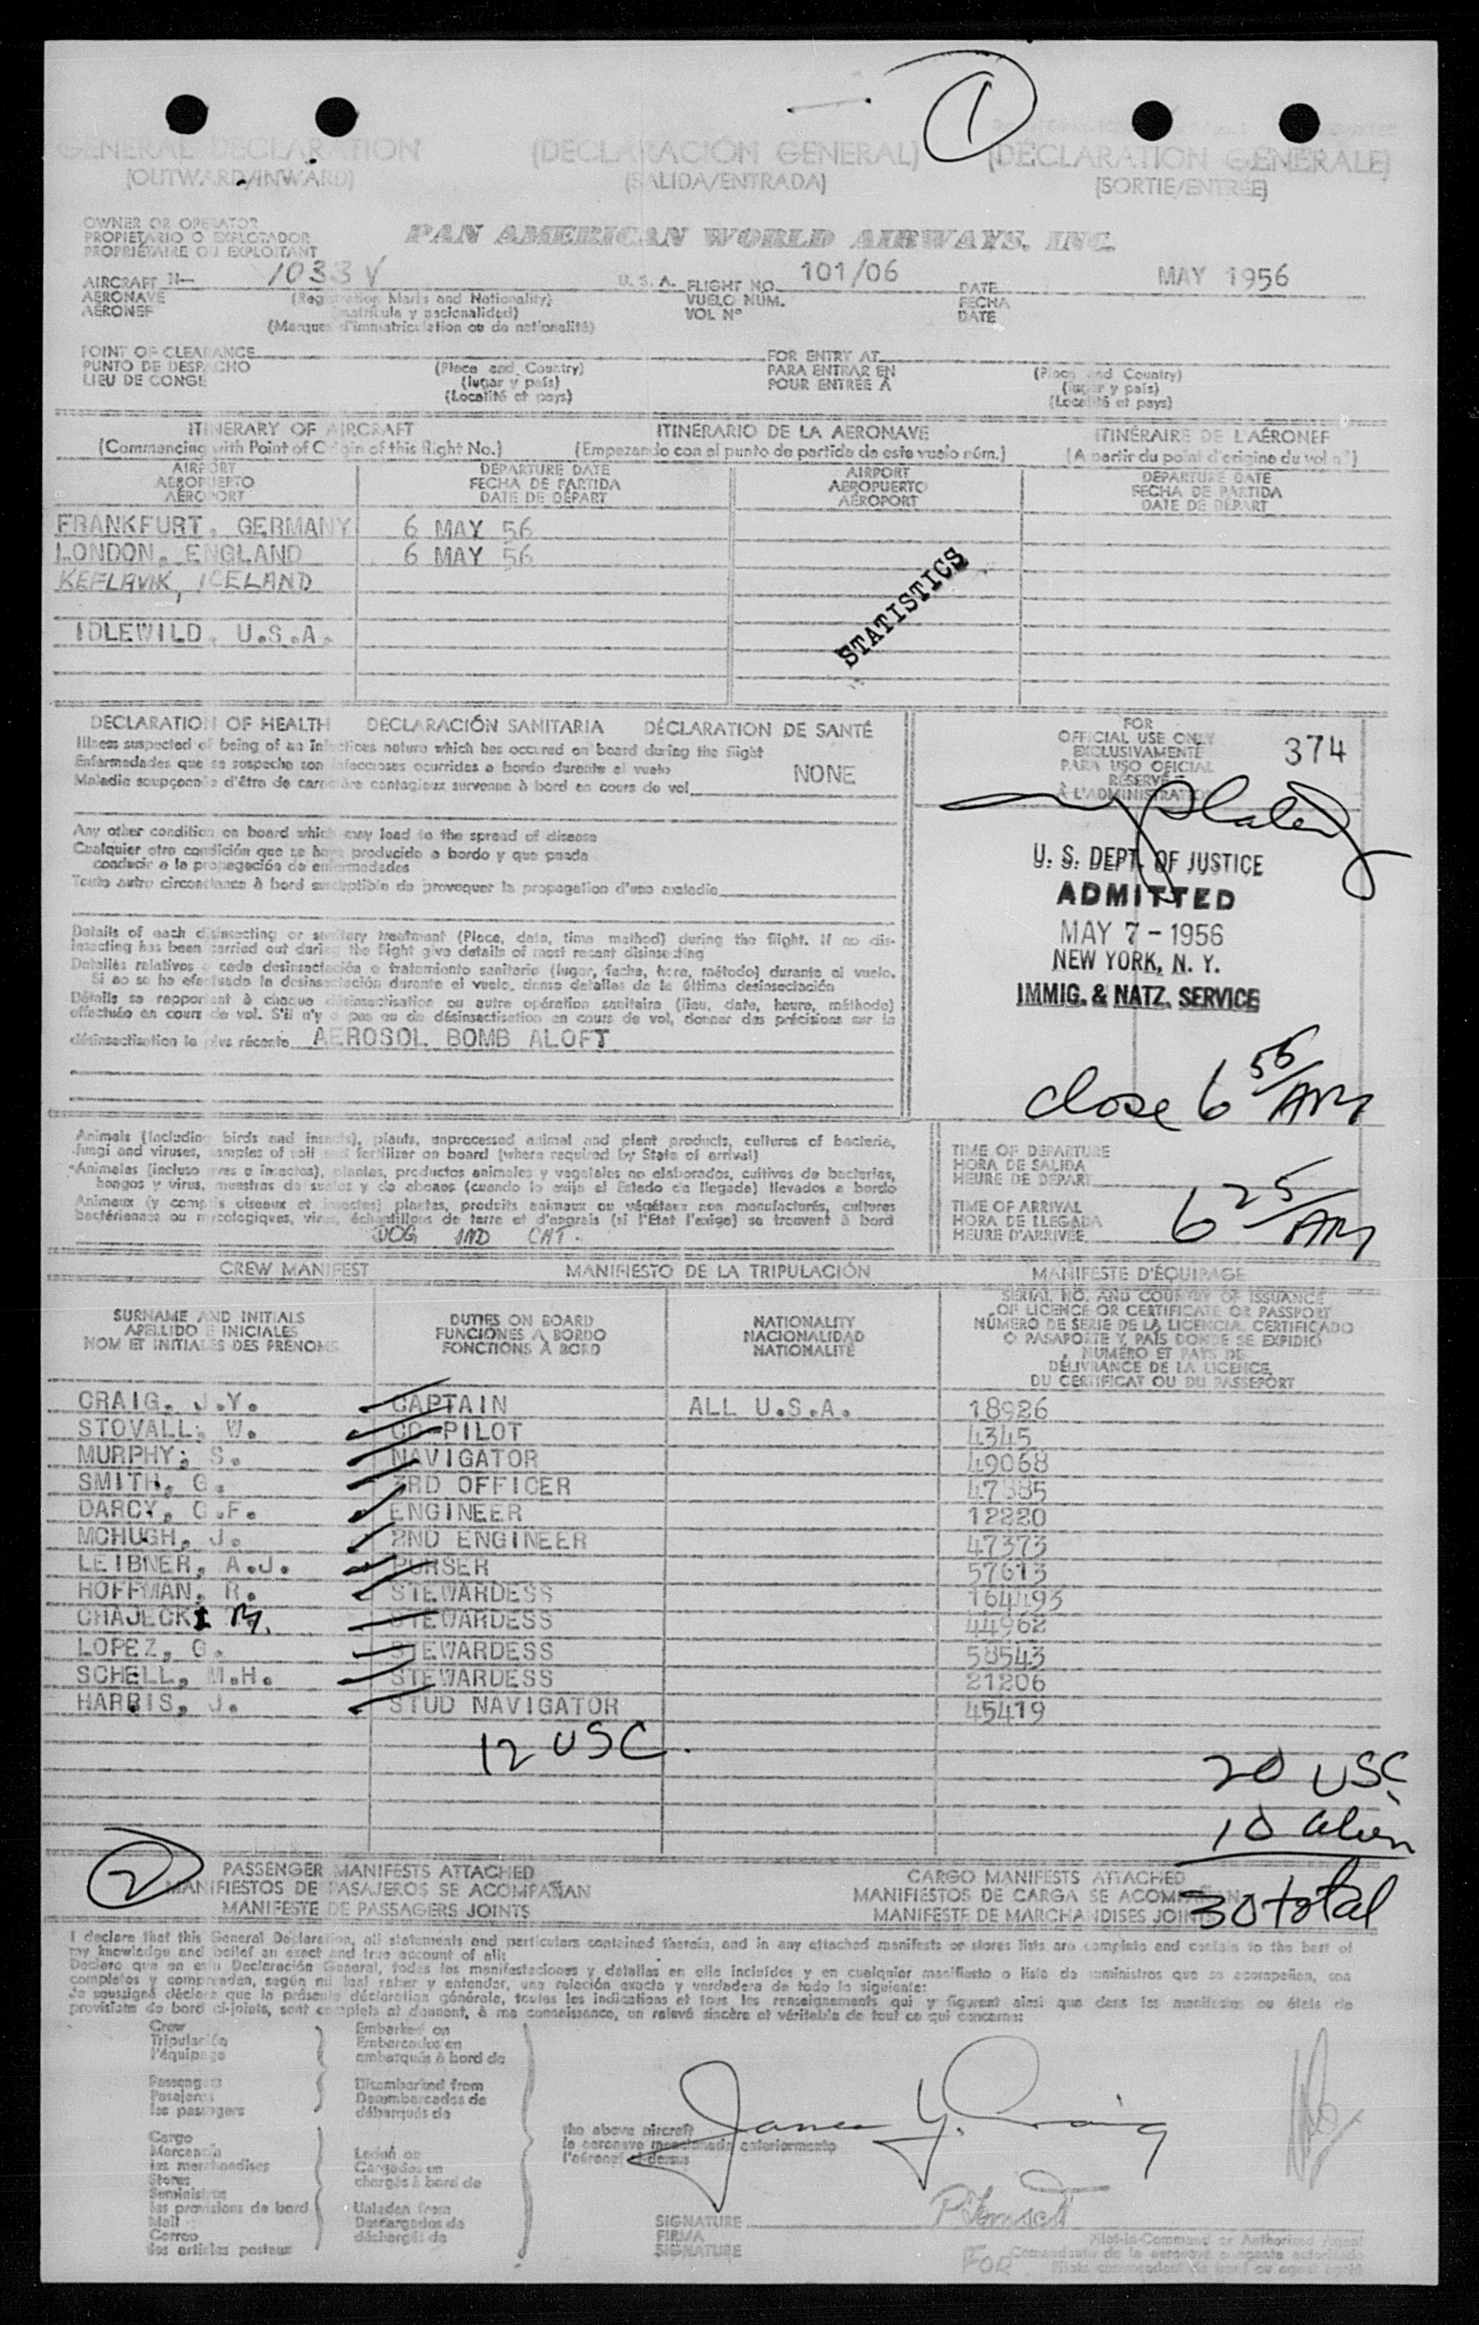 1
GENERAL DECLARATION (DECLARACIÓN GENERAL) (DECLARATION GÉNÉRALE)
(OUTWARD/INWARD) (SALIDA/ENTRADA) (SORTIE/ENTRÉE)
OWNER OR OPERATOR
PROPIETARIO O EXPLOTADOR
PROPRIÉTAIRE OU EXPLOITANT
PAN AMERICAN WORLD AIRWAYS, INC.
AIRCRAFT N- 1033V U. S. A. FLIGHT NO. 101/06 DATE MAY 1956
AERONAVE (Registration Marks and Nationality) VUELO NÚM. FECHA
AÉRONEF (matrícula y nacionalidad) VOL Nº DATE
(Marques d'immatriculation ou de nationalité)
POINT OF CLEARANCE FOR ENTRY AT
PUNTO DE DESPACHO (Place and Country) PARA ENTRAR EN (Place and Country)
LIEU DE CONGE (lugar y país) POUR ENTRÉE À (lugar y país)
(Localité et pays) (Localité et pays)
ITINERARY OF AIRCRAFT ITINERARIO DE LA AERONAVE ITINÉRAIRE DE L'AÉRONEF
(Commencing with Point of Origin of this Flight No.) (Empezando con el punto de partida de este vuelo núm.) (A partir du point d'origine du vol nº)
AIRPORT DEPARTURE DATE AIRPORT DEPARTURE DATE
AEROPUERTO FECHA DE PARTIDA AEROPUERTO FECHA DE PARTIDA
AÉROPORT DATE DE DÉPART AÉROPORT DATE DE DÉPART
FRANKFURT, GERMANY 6 MAY 56
LONDON, ENGLAND 6 MAY 56
KEFLAVIK, ICELAND
IDLEWILD, U.S.A.
STATISTICS
DECLARATION OF HEALTH DECLARACIÓN SANITARIA DÉCLARATION DE SANTÉ
Illness suspected of being of an infectious nature which has occured on board during the flight
Enfermedades que se sospecha son infecciosas ocurridas a bordo durante el vuelo
Maladie soupçonnée d'être de caractère contagieux survenue à bord en cours de vol NONE
Any other condition on board which may lead to the spread of disease
Cualquier otra condición que se haya producido a bordo y que pueda
conducir a la propagación de enfermedades
Toute autre circonstance à bord susceptible de provoquer la propagation d'une maladie
Details of each disinsecting or sanitary treatment (Place, date, time method) during the flight. If no dis-
insecting has been carried out during the flight give details of most recent disinsecting
Detalles relativos a cada desinsectación o tratamiento sanitario (lugar, fecha, hora, método) durante el vuelo.
Si no se ha efectuado la desinsectación durante el vuelo, dense detalles de la última desinsectación
Détails se rapportant à chaque désinsectisation ou autre opération sanitaire (lieu, date, heure, méthode)
effectuée en cours de vol. S'il n'y a pas eu de désinsectisation en cours de vol, donner des précisions sur la
désinsectisation la plus récente AEROSOL BOMB ALOFT
FOR
OFFICIAL USE ONLY
EXCLUSIVAMENTE
PARA USO OFICIAL
RÉSERVÉ
À L'ADMINISTRATION
374
U. S. DEPT. OF JUSTICE
ADMITTED
MAY 7 - 1956
NEW YORK, N. Y.
IMMIG. & NATZ. SERVICE
close 6 56/AM
Animals (including birds and insects), plants, unprocessed animal and plant products, cultures of bacteria,
fungi and viruses, samples of soil and fertilizer on board (where required by State of arrival)
Animales (incluso aves e insectos), plantas, productos animales y vegetales no elaborados, cultivos de bacterias,
hongos y virus, muestras de suelos y de abonos (cuando lo exija el Estado de llegada) llevados a bordo
Animaux (y compris oiseaux et insectes) plantes, produits animaux ou végétaux non manufacturés, cultures
bactériennes ou mycologiques, virus, échantillons de terre et d'engrais (si l'État l'exige) se trouvant à bord
DOG AND CAT.
TIME OF DEPARTURE
HORA DE SALIDA
HEURE DE DÉPART
TIME OF ARRIVAL
HORA DE LLEGADA
HEURE D'ARRIVÉE
6 25/AM
CREW MANIFEST MANIFIESTO DE LA TRIPULACIÓN MANIFESTE D'ÉQUIPAGE
SURNAME AND INITIALS
APELLIDO E INICIALES
NOM ET INITIALES DES PRÉNOMS
DUTIES ON BOARD
FUNCIONES A BORDO
FONCTIONS À BORD
NATIONALITY
NACIONALIDAD
NATIONALITÉ
SERIAL NO. AND COUNTRY OF ISSUANCE
OF LICENCE OR CERTIFICATE OR PASSPORT
NÚMERO DE SERIE DE LA LICENCIA, CERTIFICADO
O PASAPORTE Y PAÍS DONDE SE EXPIDIÓ
NUMÉRO ET PAYS DE
DÉLIVRANCE DE LA LICENCE,
DU CERTIFICAT OU DU PASSEPORT
CRAIG, J.Y. CAPTAIN ALL U.S.A. 18926
STOVALL, W. CO-PILOT 4345
MURPHY, S. NAVIGATOR 49068
SMITH, G. 3RD OFFICER
DARCY, G.F. ENGINEER 12220
MCHUGH, J. 2ND ENGINEER 47373
LEIBNER, A.J. PURSER 57613
HOFFMAN, R. STEWARDESS 164493
CHAJECKI M. STEWARDESS 44962
LOPEZ, G. STEWARDESS 58543
SCHELL, M.H. STEWARDESS 21206
HARRIS, J. STUD NAVIGATOR 45419
12 USC.
20 USC
10 alien
30 total
2
PASSENGER MANIFESTS ATTACHED CARGO MANIFESTS ATTACHED
MANIFIESTOS DE PASAJEROS SE ACOMPAÑAN MANIFIESTOS DE CARGA SE ACOMPAÑAN
MANIFESTE DE PASSAGERS JOINTS MANIFESTE DE MARCHANDISES JOINTS
I declare that this General Declaration, all statements and particulars contained therein, and in any attached manifests or stores lists are complete and contain to the best of
my knowledge and belief an exact and true account of all:
Declaro que en esta Declaración General, todas las manifestaciones y detalles en ella incluídos y en cualquier manifiesto o lista de suministros que se acompañen, son
completos y comprenden, según mi leal saber y entender, una relación exacta y verdadera de todo lo siguiente:
Je soussigné déclare que la présente déclaration générale, toutes les indications et tous les renseignements qui y figurent ainsi que dans les manifestes ou états de
provisions de bord ci-joints, sont complets et donnent, à ma connaissance, un relevé sincère et véritable de tout ce qui concerne:
Crew
Tripulación
l'équipage
Passengers
Pasajeros
les passagers
Cargo
Mercancía
les marchandises
Stores
Suministros
les provisions de bord
Mail
Correo
les articles postaux
Embarked on
Embarcados en
embarqués à bord de
Disembarked from
Desembarcados de
débarqués de
Laden on
Cargados en
chargés à bord de
Unladen from
Descargados de
déchargés de
the above aircraft
la aeronave mencionada anteriormente
l'aéronef ci-dessus
James Y. Craig
SIGNATURE
FIRMA
SIGNATURE
FOR
Pilot-in-Command or Authorized Agent
Comandante de la aeronave o agente autorizado